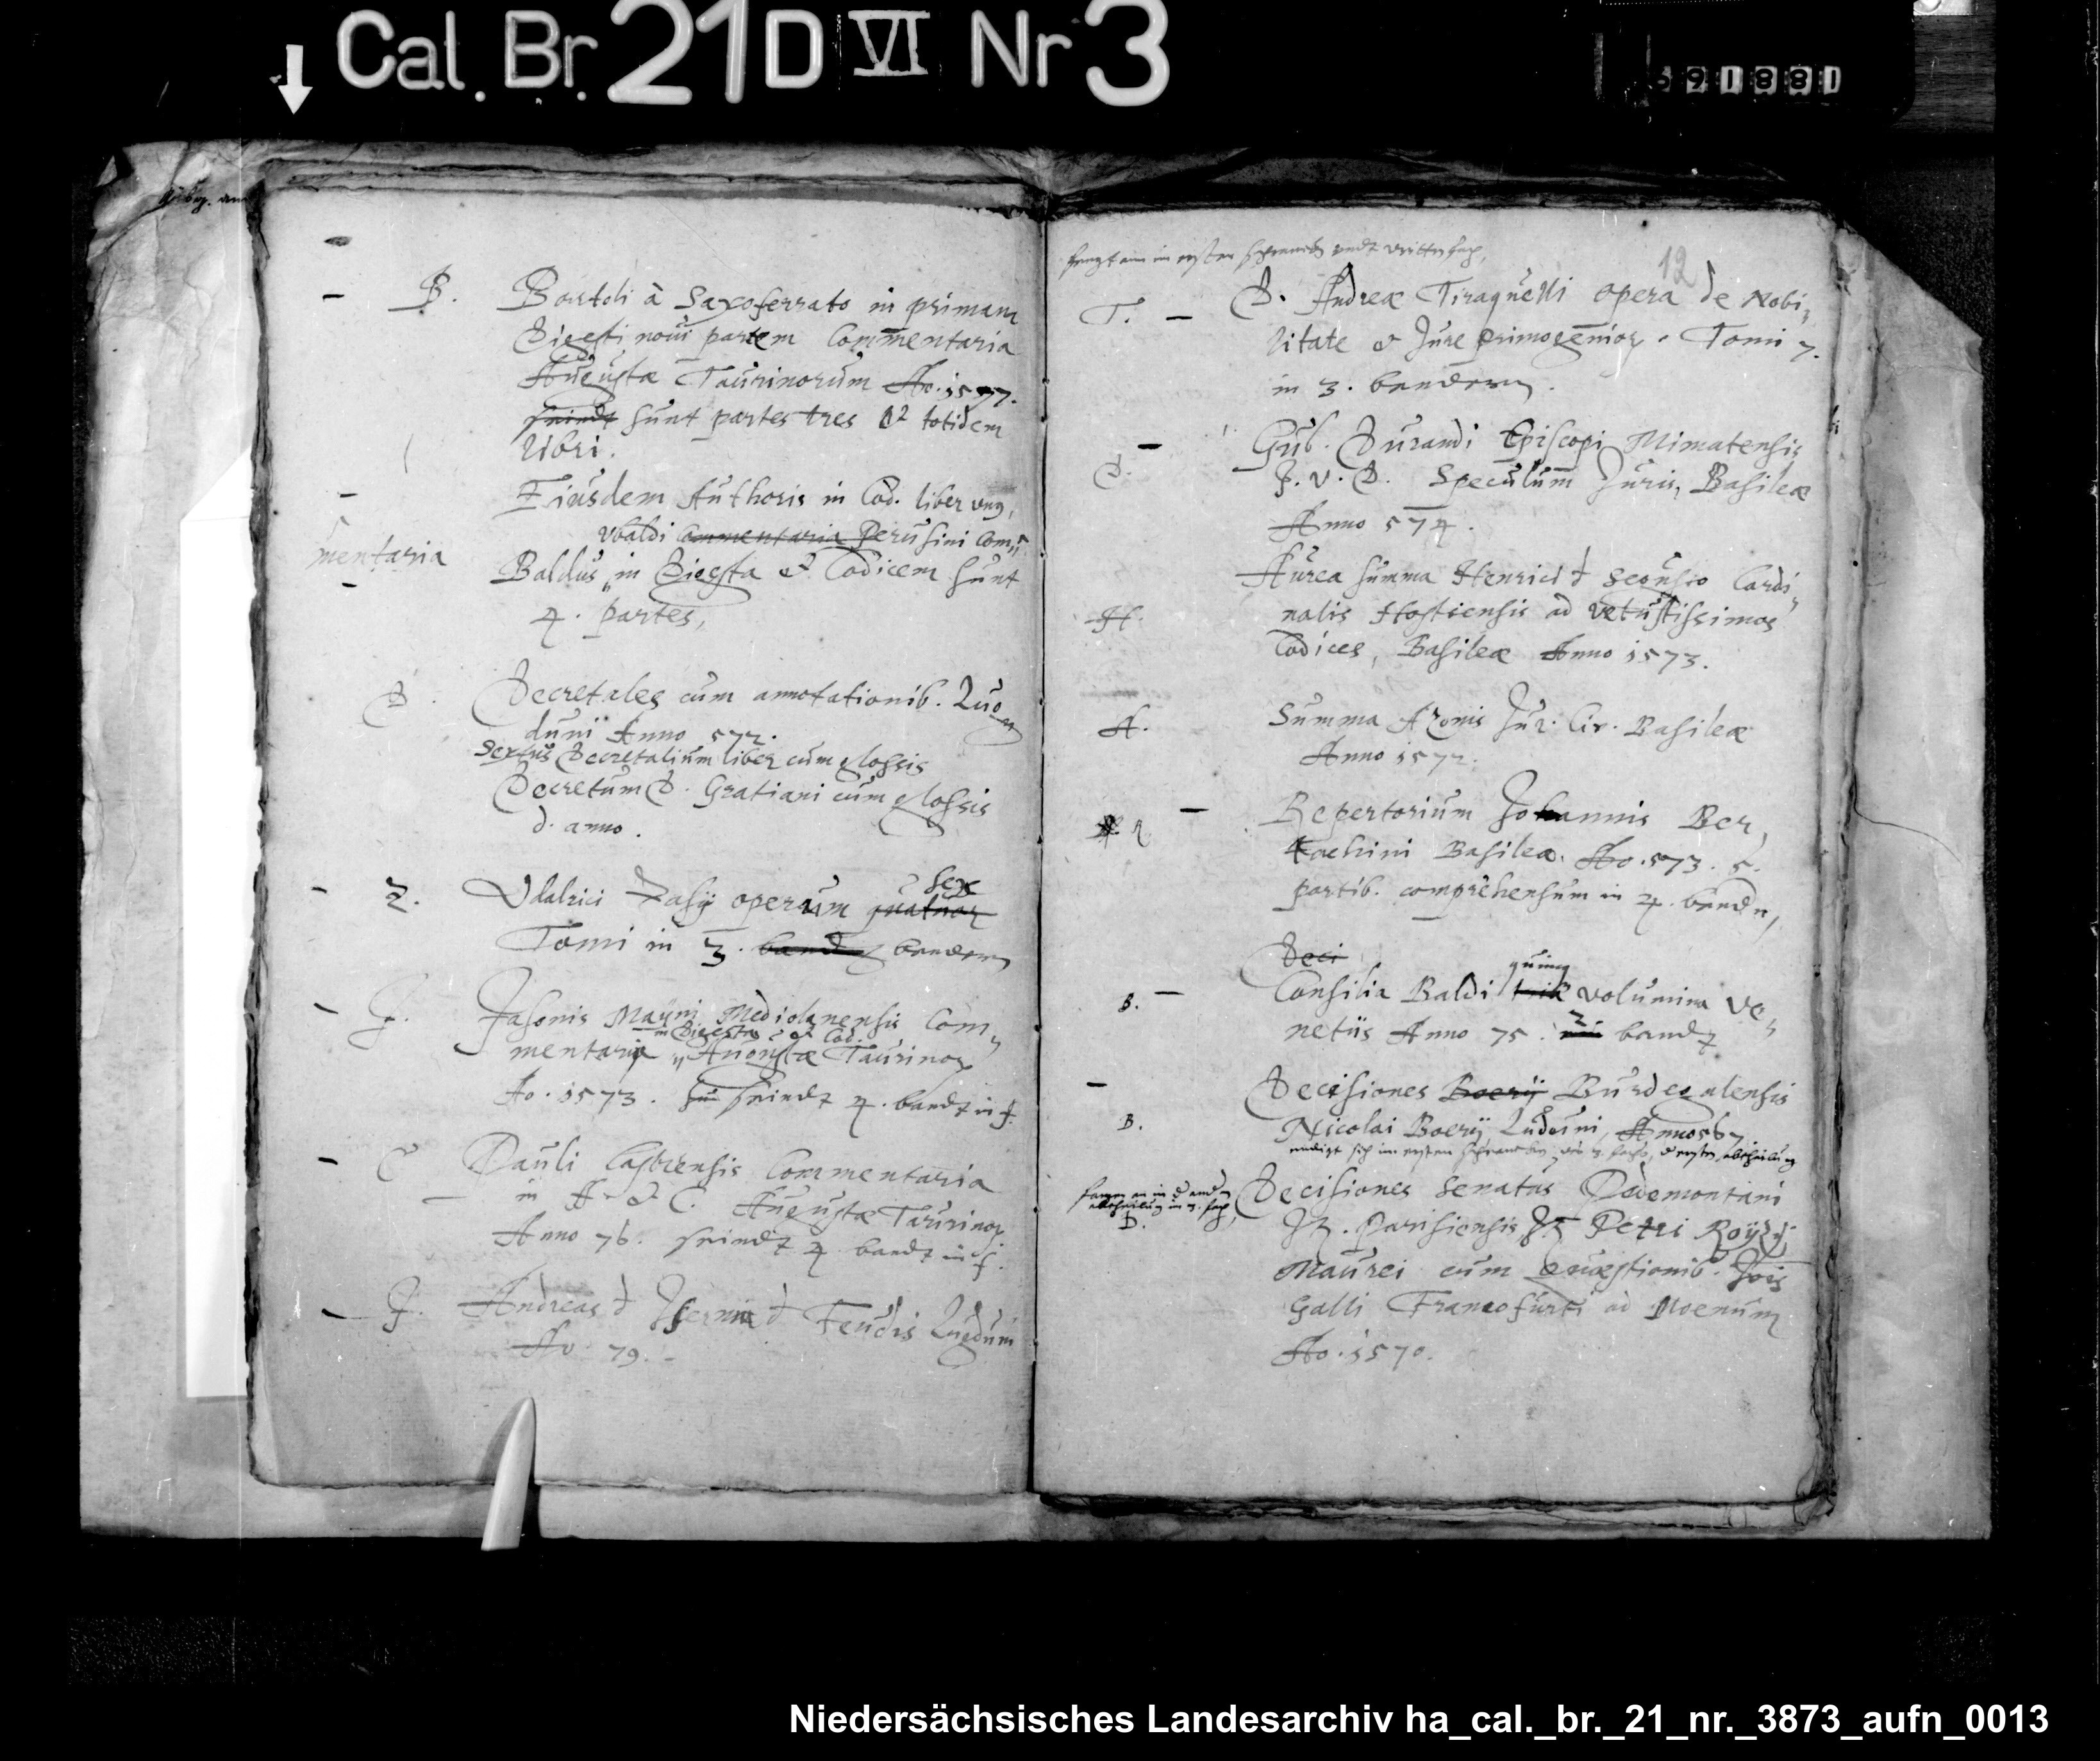 Cal. Br. 21 D VI Nr 3
391881
B. Bartoli à Saxoferrato in primam
Digesti novi partem Commentaria
Augustæ Taurinorum Ao. 1577.
seindt sunt partes tres et totidem
libri.
Eiusdem Authoris in Cod. liber vng,
Vbaldi Commentaria Perusini Com=
mentaria
Baldus in Digesta et Codicem sunt
4. partes,
D. Decretales cum annotationib. Lug
duni Anno 572.
Sextus Decretalium liber cum glossis
Decretum D. Gratiani cum glossis
d. anno.
sex
Z. Vdalrici Zasij operum quatuor
Tomi in 3. bandt bendern
J. Jasonis Mayni Mediolanensis Com=
in Digesta et Cod.
mentaria Augustæ Taurinor
Ao. 1573. seindt 4. bandt in f.
C Pauli Castrensis Commentaria
in ff. et C. Augustæ Taurinor
Anno 76. seindt 4 bandt in f.
J. Andreas d Isernia d Feudis Lugduni
Ao 79.
12
fengt an im ersten schranck vndt dritten fach,
T. D. Andreæ Tiraquelli opera de Nobi=
litate et Jure primogenior. Tomi 7.
in 3. bendern.
D. Gul. Durandi Episcopi Mimatensis
J. V. D. Speculum Juris, Basileæ
Anno 574.
Aurea summa Henrici d Segusio Cardi=
H. nalis Hostiensis ad vetustissimos
Codices, Basileæ Anno 1573.
A. Summa Azonis Jur. Civ. Basileæ
Anno 1572.
R Repertorium Johannis Ber,
tachini Basileæ. Ao. 573. 5.
partib. comprehensum in 4. bendn,
Deci
quinq
B. Consilia Baldi volumina Ve=
netiis Anno 75. 2 bandt
Decisiones Boerij Burdegalensis
B. Nicolai Boerij Luduni, Anno 567
endigt sich im ersten schrancke, des 3. fachs, d ersten abtheilung
Decisiones Senatus Pedemontani
fangen an in d andn
abtheilung im 3. fach,
D. It. Parisiensis, It Petri Roijzij
Maurei cum quæstionib. Jois
Galli Francofurti ad Moenum
Ao. 1570.
Niedersächsisches Landesarchiv ha_cal._br._21_nr._3873_aufn_0013